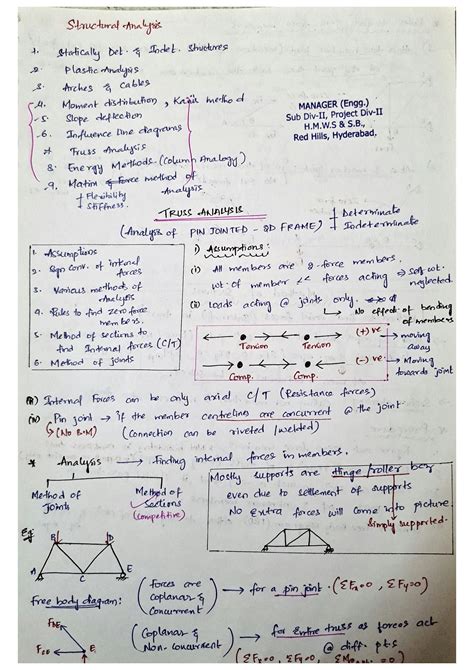 Structural Analysis
1. Statically Det. & Indet. Structures
2. Plastic Analysis
3. Arches & Cables
4. Moment distribution, Kani's method
5. Slope deflection
6. Influence line diagrams
7. Truss Analysis
8. Energy Methods (Column Analogy)
9. Matrix & Force method of Analysis
Flexibility
Stiffness
MANAGER (Engg.)
Sub Div-II, Project Div-II
H.M.W.S & S.B.,
Red Hills, Hyderabad,
TRUSS ANALYSIS
(Analysis of PIN JOINTED - 2D FRAME)
Determinate
Indeterminate
1. Assumptions
2. Sign conv. of internal forces
3. Various methods of Analysis
4. Rules to find zero force members.
5. Method of sections to find Internal forces (C/T)
6. Method of joints
1) Assumptions:
(i) All members are 2-force members.
wt. of member << forces acting → Self wt. neglected.
(ii) Loads acting @ joints only.
No effect of bending of members
Tension Tension (+) ve → moving away
Comp. Comp. (-) ve → Moving towards joint
(iii) Internal Forces can be only axial C/T (Resistance forces)
(iv) Pin joint → if the member centreline are concurrent @ the joint
(No B.M) (Connection can be riveted/welded)
* Analysis → Finding internal forces in members.
Method of Joints
Method of Sections
(Competitive)
Mostly supports are Hinge/roller bcz
even due to settlement of supports
No Extra forces will come into picture.
Simply supported.
Eg:
B D
A C E
Free body diagram:
(forces are coplanar & Concurrent) → for a pin joint. (ΣFx=0, ΣFy=0)
(Coplanar & Non-concurrent) → for Entire truss as forces act @ diff. pts
E